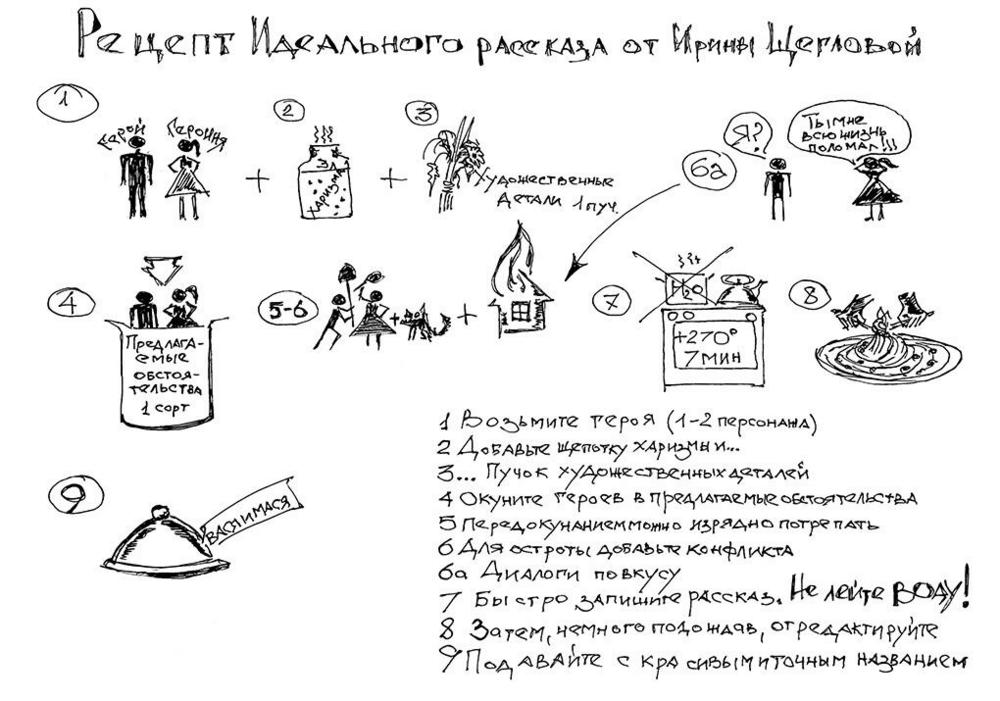 Рецепт Идеального рассказа от Ирины Щегловой
1
Герой
Героиня
+
2
Харизма
+
3
Художественные
детали 1 пуч.
6а
Я?
Ты мне
всю жизнь
поломал!!!
4
Предлага-
емые
обстоя-
тельства
1 сорт
5-6
+
+
7
H2O
+270°
7 мин
8
9
ВАСЯ И МАСЯ
1 Возьмите героя (1-2 персонажа)
2 Добавьте щепотку харизмы и...
3... Пучок художественных деталей
4 Окуните героев в предлагаемые обстоятельства
5 Перед окунанием можно изрядно потрепать
6 Для остроты добавьте конфликта
6а Диалоги по вкусу
7 Быстро запишите рассказ. Не лейте ВОДУ!
8 Затем, немного подождав, отредактируйте
9 Подавайте с красивым и точным названием